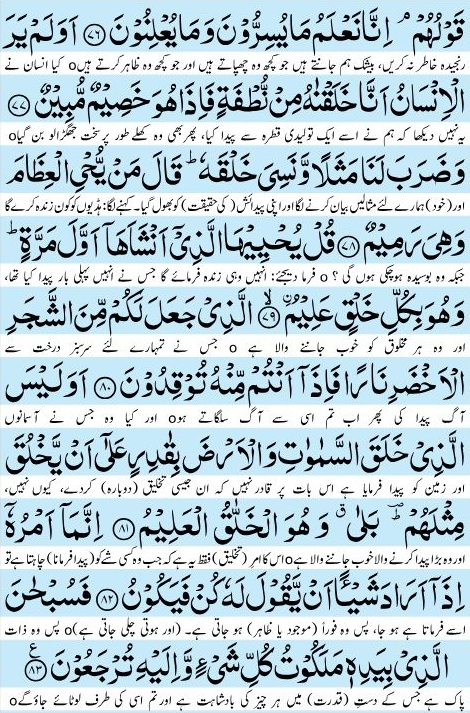 قَوْلُهُمْ ۘ اِنَّا نَعْلَمُ مَا يُسِرُّوْنَ وَ مَا يُعْلِنُوْنَ ﴿۷۶﴾ اَوَ لَمْ يَرَ
رنجیدہ خاطر نہ کریں، بیشک ہم جانتے ہیں جو کچھ وہ چھپاتے ہیں اور جو کچھ وہ ظاہر کرتے ہیں o کیا انسان نے
الْاِنْسَانُ اَنَّا خَلَقْنٰهُ مِنْ نُّطْفَةٍ فَاِذَا هُوَ خَصِيْمٌ مُّبِيْنٌ ﴿۷۷﴾
یہ نہیں دیکھا کہ ہم نے اسے ایک تولیدی قطرہ سے پیدا کیا، پھر بھی وہ کھلے طور پر سخت جھگڑالو بن گیا o
وَ ضَرَبَ لَنَا مَثَلًا وَّ نَسِيَ خَلْقَهٗ ؕ قَالَ مَنْ يُّحْيِ الْعِظَامَ
اور (خود) ہمارے لئے مثالیں بیان کرنے لگا اور اپنی پیدائش (کی حقیقت) کو بھول گیا۔ کہنے لگا: ہڈیوں کو کون زندہ کرے گا
وَ هِيَ رَمِيْمٌ ﴿۷۸﴾ قُلْ يُحْيِيْهَا الَّذِيْۤ اَنْشَاَهَاۤ اَوَّلَ مَرَّةٍ ؕ
جبکہ وہ بوسیدہ ہوچکی ہوں گی؟ o فرما دیجئے: انہیں وہی زندہ فرمائے گا جس نے انہیں پہلی بار پیدا کیا تھا،
وَ هُوَ بِكُلِّ خَلْقٍ عَلِيْمُ ۙ﴿۷۹﴾ الَّذِيْ جَعَلَ لَكُمْ مِّنَ الشَّجَرِ
اور وہ ہر مخلوق کو خوب جاننے والا ہے o جس نے تمہارے لئے سرسبز درخت سے
الْاَخْضَرِ نَارًا فَاِذَاۤ اَنْتُمْ مِّنْهُ تُوْقِدُوْنَ ﴿۸۰﴾ اَوَ لَيْسَ
آگ پیدا کی پھر اب تم اسی سے آگ سلگاتے ہو o اور کیا وہ جس نے آسمانوں
الَّذِيْ خَلَقَ السَّمٰوٰتِ وَ الْاَرْضَ بِقٰدِرٍ عَلٰۤى اَنْ يَّخْلُقَ
اور زمین کو پیدا فرمایا ہے اس بات پر قادر نہیں کہ ان جیسی تخلیق (دوبارہ) کردے، کیوں نہیں،
مِثْلَهُمْ ؕ بَلٰى ۗ وَ هُوَ الْخَلّٰقُ الْعَلِيْمُ ﴿۸۱﴾ اِنَّمَاۤ اَمْرُهٗۤ
اور وہ بڑا پیدا کرنے والا خوب جاننے والا ہے o اس کا امرِ (تخلیق) فقط یہ ہے کہ جب وہ کسی شے کو (پیدا فرمانا) چاہتا ہے تو
اِذَاۤ اَرَادَ شَيْـًٔا اَنْ يَّقُوْلَ لَهٗ كُنْ فَيَكُوْنُ ﴿۸۲﴾ فَسُبْحٰنَ
اسے فرماتا ہے ہو جا، پس وہ فوراً (موجود یا ظاہر) ہو جاتی ہے۔ (اور ہوتی چلی جاتی ہے) o پس وہ ذات
الَّذِيْ بِيَدِهٖ مَلَكُوْتُ كُلِّ شَيْءٍ وَّ اِلَيْهِ تُرْجَعُوْنَ ﴿۸۳﴾ ع
پاک ہے جس کے دستِ (قدرت) میں ہر چیز کی بادشاہت ہے اور تم اسی کی طرف لوٹائے جاؤ گے o